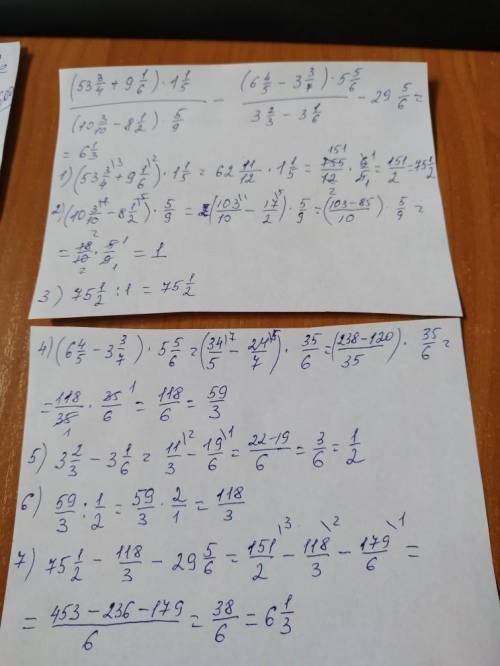 (53 3/4 + 9 1/6) · 1 1/5 / (10 3/10 - 8 1/2) · 5/9 - (6 4/5 - 3 3/7) · 5 5/6 / 3 2/3 - 3 1/6 - 29 5/6 =
= 6 1/3
1) (53 3/4 \3 + 9 1/6 \2) · 1 1/5 = 62 11/12 · 1 1/5 = 755/12 · 6/5 = 151/2 = 75 1/2
2) (10 3/10 - 8 1/2 \5) · 5/9 = (103/10 \1 - 17/2 \5) · 5/9 = (103-85/10) · 5/9 =
= 18/10 · 5/9 = 1
3) 75 1/2 : 1 = 75 1/2
4) (6 4/5 - 3 3/7) · 5 5/6 = (34/5 \7 - 24/7 \5) · 35/6 = (238-120/35) · 35/6 =
= 118/35 · 35/6 = 118/6 = 59/3
5) 3 2/3 - 3 1/6 = 11/3 \2 - 19/6 \1 = 22-19/6 = 3/6 = 1/2
6) 59/3 : 1/2 = 59/3 · 2/1 = 118/3
7) 75 1/2 - 118/3 - 29 5/6 = 151/2 \3 - 118/3 \2 - 179/6 \1 =
= 453-236-179/6 = 38/6 = 6 1/3